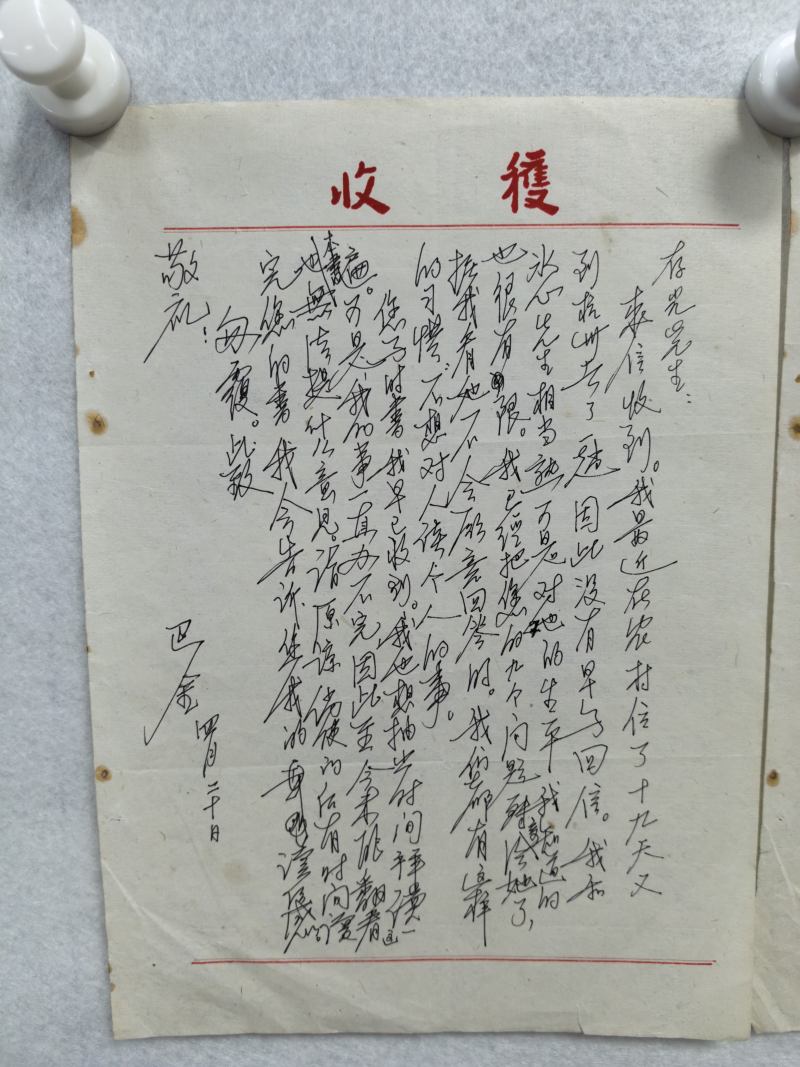 收 穫
存光先生：
来信收到。我最近在农村住了十九天又
到杭州去了一趟，因此没有早写回信。我和
冰心先生相当熟，可是对她的生平我知道的
也很有限。我已经把您的九个问题转寄给她了，
据我看她不会愿意回答的。我们都有这样
的习惯，不想对人谈个人的事。
您的书我早已收到。我也想抽出时间拜读一
遍。可是我的事一直办不完，因此至今未能翻看这
本书，我也无法提什么意见。请原谅。倘使以后有时间读
完您的书，我会告诉您我的
匆覆。此致
敬礼！
巴金
四月二十日